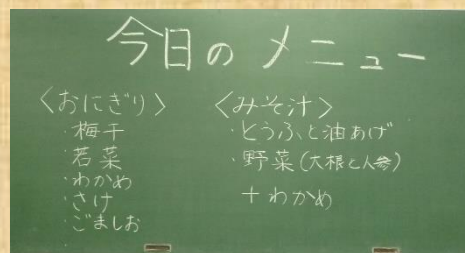 今日のメニュー
〈おにぎり〉
・梅干
・若菜
・わかめ
・さけ
・ごましお
〈みそ汁〉
・とうふと油あげ
・野菜(大根と人参)
+わかめ